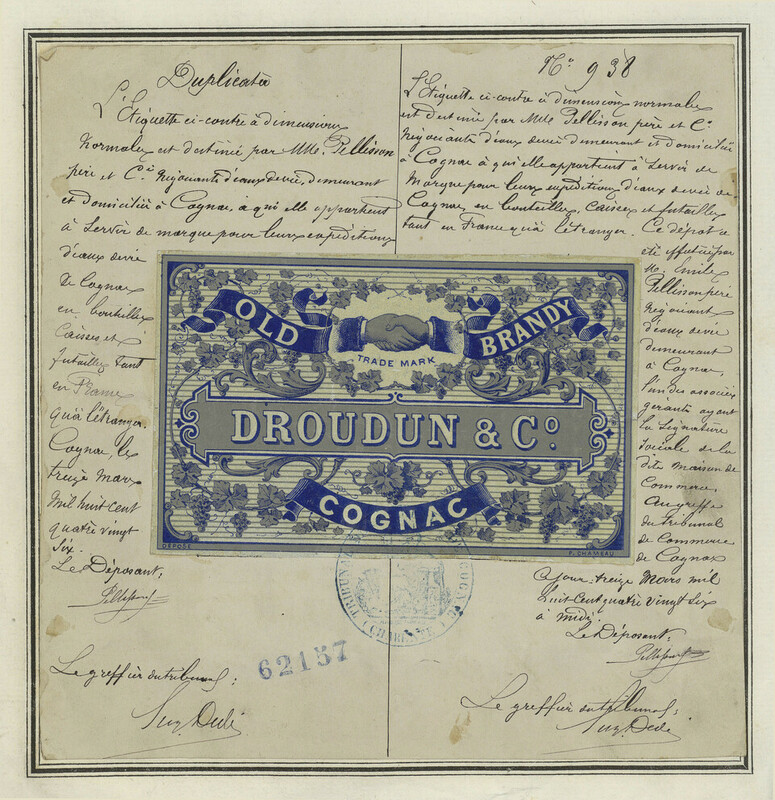 Duplicata
L'Etiquette ci-contre à dimensions
Normales est destinée par MM. Pellisson
père et Cie Négociants d'eaux devie, demeurant
et domiciliés à Cognac, à qui elle appartient
à Servir de marque pour leurs expéditions
d'eaux devie
De Cognac
en bouteilles
Caisses et
futailles tant
en France
qu'à l'étranger.
Cognac, le
treize Mars
Mil huit cent
quatre vingt
Six.
Le Déposant;
Pellisson
Le greffier du tribunal;
No 938
L'Etiquette ci-contre à dimensions normales
est destinée par MM. Pellisson père et Cie
Négociants d'eaux devie demeurant et domiciliés
à Cognac à qui elle appartient à Servir de
Marque pour leurs expéditions d'eaux devie de
Cognac, en bouteilles, Caisses et futailles
tant en France qu'à l'étranger. Ce dépot a
été effectué par
M. Emile
Pellisson père
Négociant
d'eaux devie
demeurant
à Cognac,
l'un des associés
gérants ayant
la Signature
Sociale de la
dite maison de
Commerce,
Au greffe
du tribunal
de Commerce
de Cognac
Ce jour treize Mars mil
huit Cent quatre vingt Six
à midi
Le Déposant;
Pellisson
Le greffier du tribunal;
OLD BRANDY
TRADE MARK
DROUDUN & Co.
COGNAC
DÉPOSÉ
P. CHAMEAU
TRIBUNAL
COGNAC
(CHARENTE)
62157